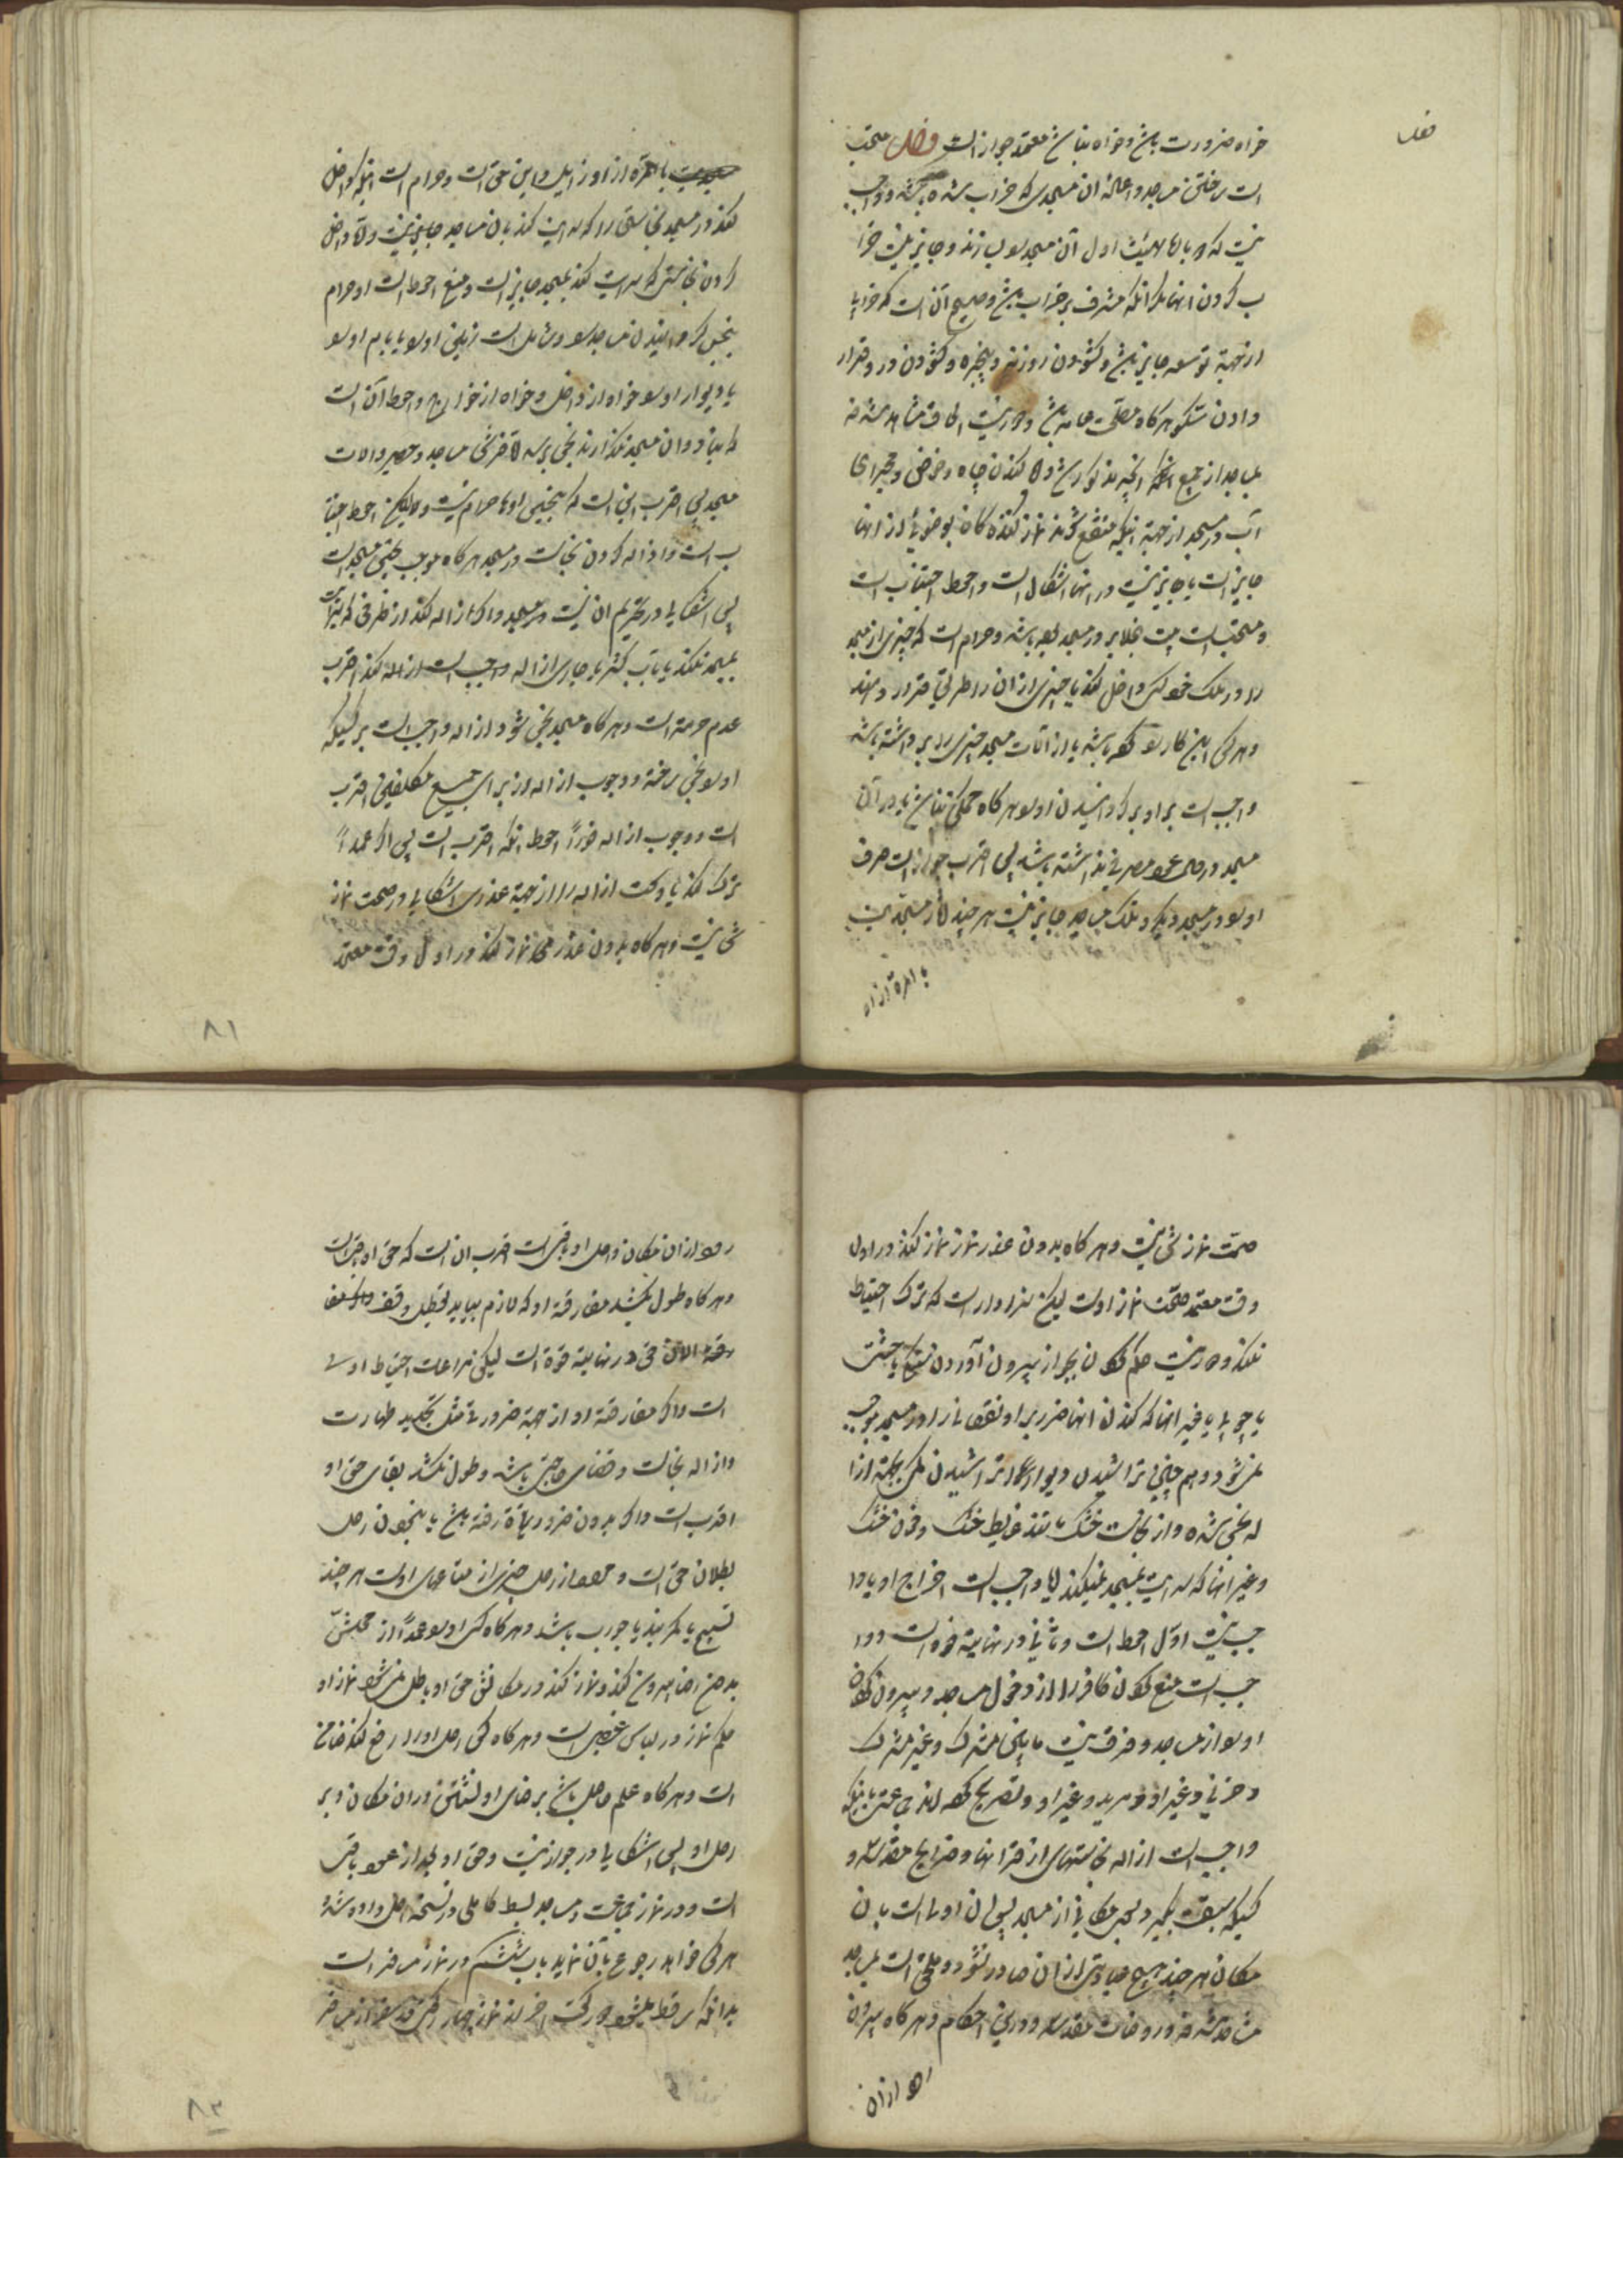 فصل
خواه ضرورت باشد و خواه نباشد معتمد جواز است فصل مستحب
است ساختن مساجد و اعاده ان مسجدی که خراب شده باشد و واجب
نیست که او را بهمان هیئت اول آن مسجد بسازند و جایز نیست خرا
ب کردن انها مگر انکه مشرف بر خراب باشد و صحیح آن است که خرابی
از جهة توسعه جایز باشد و کشودن روزنه و پنجره و کشودن در و قرار
دادن هرگاه مصلحت عامه باشد و دور نیست الحاق مشاهد مشرفه
بمساجد از جمیع انچه مذکور شد و اما کندن چاه و حوض و مجرای
آب در مسجد از جهة انکه منتفع شوند نماز کننده گان بوضو از انها
جایز است یا جایز نیست در انها اشکال است و احوط اجتناب است
و مستحب است بیت الخلا بر در مسجد بوده باشد و حرام است که چیزی از مسجد
را در ملک خود کسی داخل کند یا چیزی از ان را طریق قرار دهند
و هر کس این کار کرده باشد یا از آلات مسجد چیزی را برداشته باشد
واجب است بر او برگردانیدن او هرگاه ممکن نباشد یا در آن
مسجد مصرفی نداشته باشد پس اقرب جواز است صرف
او در مسجد دیگر و تملک مساجد جایز نیست هر چند آثار مسجدیت
بالمرة از او
بالمرة از او زایل و این حق است و حرام است انکه داخل
کند در مسجد نجاستی را که سرایت کند بان مساجد جایز نیست و اما داخل
کردن نجاستی که سرایت نکند بمسجد جایز است و منع احوط است و حرام
نجس کردانیدن مساجد و شامل است زمین او یا بام او
یا دیوار او خواه از داخل و خواه از خوارج و احوط آن است
که بنا در ان مسجد نگذارند نجس پس فرش مساجد و حصیر و الات
مسجد پس اقرب این است که نجس اوها حرام نیست ولیکن احوط اجتنا
ب است و ازاله کردن نجاست در مسجد هرگاه موجب تنجیس مسجد است
پس اشکالی در تحریم ان نیست در مسجد و اگر ازاله کند از ظرفی که سرایت
بمسجد نکند یا بآب کثیر یا جاری ازاله واجب است ازاله کند اقرب
عدم حرمة است و هرگاه مسجد نجس شود ازاله واجب است بر کسیکه
او نجس ساخته و وجوب ازاله از برای جمیع مکلفین اقرب
است و وجوب ازاله فوراً احوط انکه اقرب است پس اگر عمداً
ترک کند یا وقت ازاله را از جهة عذری اشکالی در صحت نماز
شخص نیست و هرگاه بدون عذر نماز کند در اول وقت معتمد
۸۱
صحت نماز شخص نیست و هرگاه بدون عذر نماز کند در اول
وقت معتمد صحت نماز اوست لیکن سزاوار است که ترک احتیاط
نکند و دور نیست حکم کردن بجواز بیرون آوردن سنگ یا خشت
یا چوب یا غیر انها که کندن انها ضرر بر او نقصانی را در مسجد موجب
نمی شود و هم چنین تراشیدن دیوار تراشیدن مگر بجهة ازا
له نجس شده و از نجاست خشک مانند غایط خشک و خون خشک
و غیر انها که سرایت بمسجد نمیکند ایا واجب است اخراج او یا وا
جب نیست اول احوط است و ثانی در نهایت قوه است و وا
جب است منع کردن کافر را از دخول مساجد و بیرون کردن
او از مساجد و فرق نیست مابین مشرک و غیر مشرک
و حربی و غیر او و مرید و غیر او و تصریح کرده اند جماعتی باینکه
واجب است ازاله نجاستهای از قرآنها و ضرایح مقدسه و
کسیکه سبقت بگیرد بسوی مکانی از مسجد پس ان اولی است بان
مکان هر چند هیچ عبادتی از ان صادر نشود و ملحق است بمساجد
مشاهد مشرفه و روضات مقدسه در این احکام و هرگاه بیرون
رود از ان
رود از ان مکان و رحل او باقی است اقرب ان است که حق او باقی است
و هرگاه طول بکشد مفارقة او که لازم بیاید تعطیل وقف
حق در نهایت قوة است لیکن مراعات احتیاط اولی
است و اگر مفارقة او از جهة ضرورتی مثل تجدید طهارت
و ازاله نجاست و قضای حاجتی باشد و طول نکشد بقای حق او
اقرب است و اگر بدون ضرورت رفته باشد یا نبودن رحل
بطلان حق است و مراد از رحل چیزی از متاعهای اوست هر چند
تسبیح یا کمربند یا جورب باشد و هرگاه کسی او را عمداً از محلش
بدون رضا بیرون کند و نماز کند در مکانش حق او باطل نمی شود نماز او
حکم نماز در لباس غصبی است و هرگاه کسی رحل او را رفع کند ضامن
است و هرگاه علم حاصل باشد برضای او بنشستن در ان مکان و بر
رحل او پس اشکالی در جواز نیست و حق او بعد از عود باقی
است و در نماز جماعت و مساجد بسط کاملی در نسخه اصل داده شده
هر کس خواهد رجوع بآن نماید باب ششم در نماز مسافر است
بدانکه ساقط میشود دو رکعت اخر از نماز چهار رکعتی
۸۲